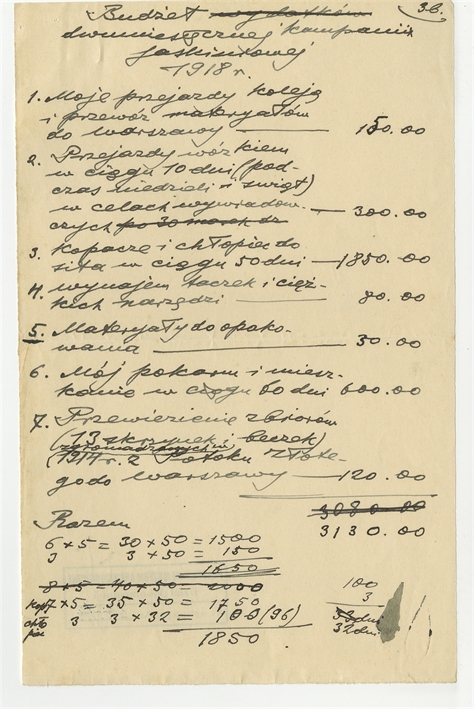 3b.
Budżet wydatków
dwumiesięcznej kampanii
jaskiniowej
1918 r.
1. Moje przejazdy koleją
i przewóz materyałów
do Warszawy — 150.00
2. Przejazdy wózkiem
w ciągu 10 dni (pod-
czas niedzieli i świąt)
w celach wywiadow- — 300.00
czych po 30 marek dz
3. Kopacze i chłopiec do
sita w ciągu 50 dni — 1850.00
4. Wynajem taczek i cięż-
kich narzędzi — 80.00
5. Materyały do opako-
wania — 30.00
6. Mój pokarm i miesz-
kanie w ciągu 60 dni 600.00
7. Przewiezienie zbiorów
(13 skrzynek i beczek)
zgromadzonych w
(1914 r. z Potoku Złote-
go do Warszawy — 120.00
3080.00
Razem 3130.00
6 x 5 = 30 x 50 = 1500
3 3 x 50 = 150
1650
8 x 5 = 40 x 50 = 2000
kop 7 x 5 = 35 x 50 = 1750
chło 3 3 x 32 = 100 (96)
1850
100
3
33 dni
32 dni